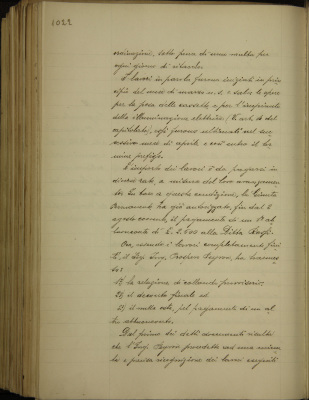 1022
ordinazione, sotto pena di una multa per
ogni giorno di ritardo.
I lavori in parola furono iniziati in prin
cipio del mese di marzo u. s. e salvo le opere
per la posa delle cassette e per l'impianto
della illuminazione elettrica (
capitolato), essi furono ultimati nel suc
cessivo mese di aprile e così entro il ter
mine prefisso.
L'importo dei lavori è da pagarsi in
diverse rate, a misura del loro avanzamen
to. In base a questa condizione, la Giunta
Municipale ha già autorizzato, fin dal 2
agosto corrente, il pagamento di un 1° ab
buonconto di L. 2.500 alla Ditta
Ora, essendo i lavori completamente fini
ti, il Sig. Ing. ha trasmes
so:
1°) la relazione di collaudo provvisorio;
2°) il decreto finale ed
3°) il nulla osta, pel pagamento di un al
tro abbuonconto.
Dal primo dei detti documenti risulta
che l'Ing. procedette ad una minu
ta e precisa ricognizione dei lavori eseguiti